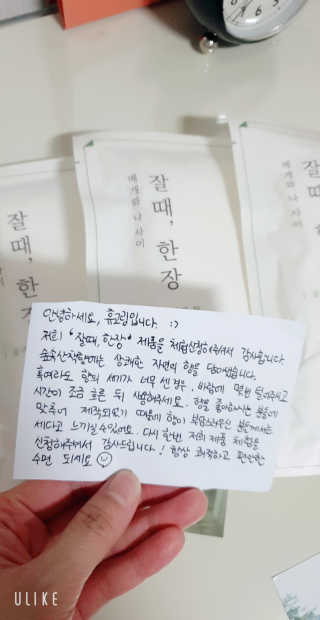 잘 때, 한 장
베개와 나 사이
잘 때, 한 장
베개와 나 사이
잘 때, 한 장
안녕하세요, 휴고림입니다. :)
저희 "잘때, 한장" 제품을 체험신청해주셔서 감사합니다
숲속산책향에는 상쾌한 자연의 향을 담아냈습니다.
혹여라도 향의 세기가 너무 센 경우, 바람에 몇번 털어주시고
시간이 조금 흐른 뒤 사용해주세요. 향을 좋아하시는 분들에
맞추어 제작되었기 때문에 향이 부담스러우신 분들께서는
세다고 느끼실 수 있어요. 다시 한번 저희 제품 체험을
신청해주셔서 감사드립니다! 항상 쾌적하고 편안한
수면 되세요
ULIKE